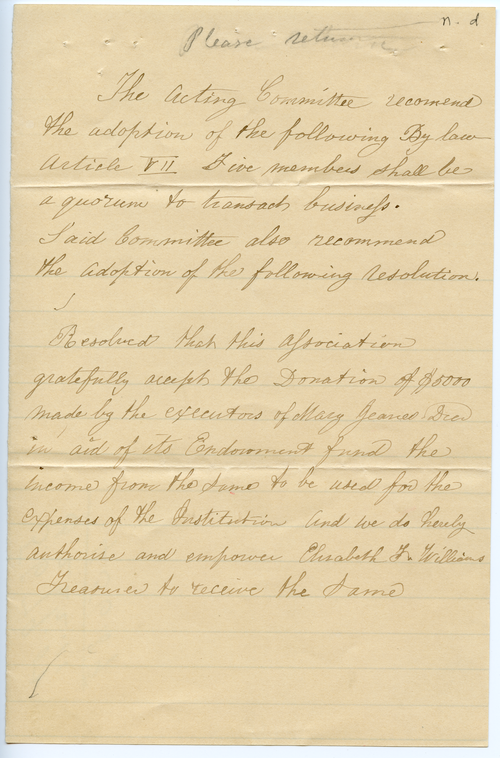 n. d
Please return
The Acting Committee recomend
the adoption of the following By law
Article VII Five members shall be
a quorum to transact business.
Said Committee also recommend
the adoption of the following resolution.
Resolved that this Association
gratefully accept the Donation of $5000
made by the executors of Mary Jeanes Decd
in aid of its Endowment fund the
income from the same to be used for the
expenses of the Institution and we do hereby
authorise and empower Elisabeth F. Williams
Treasurer to receive the same